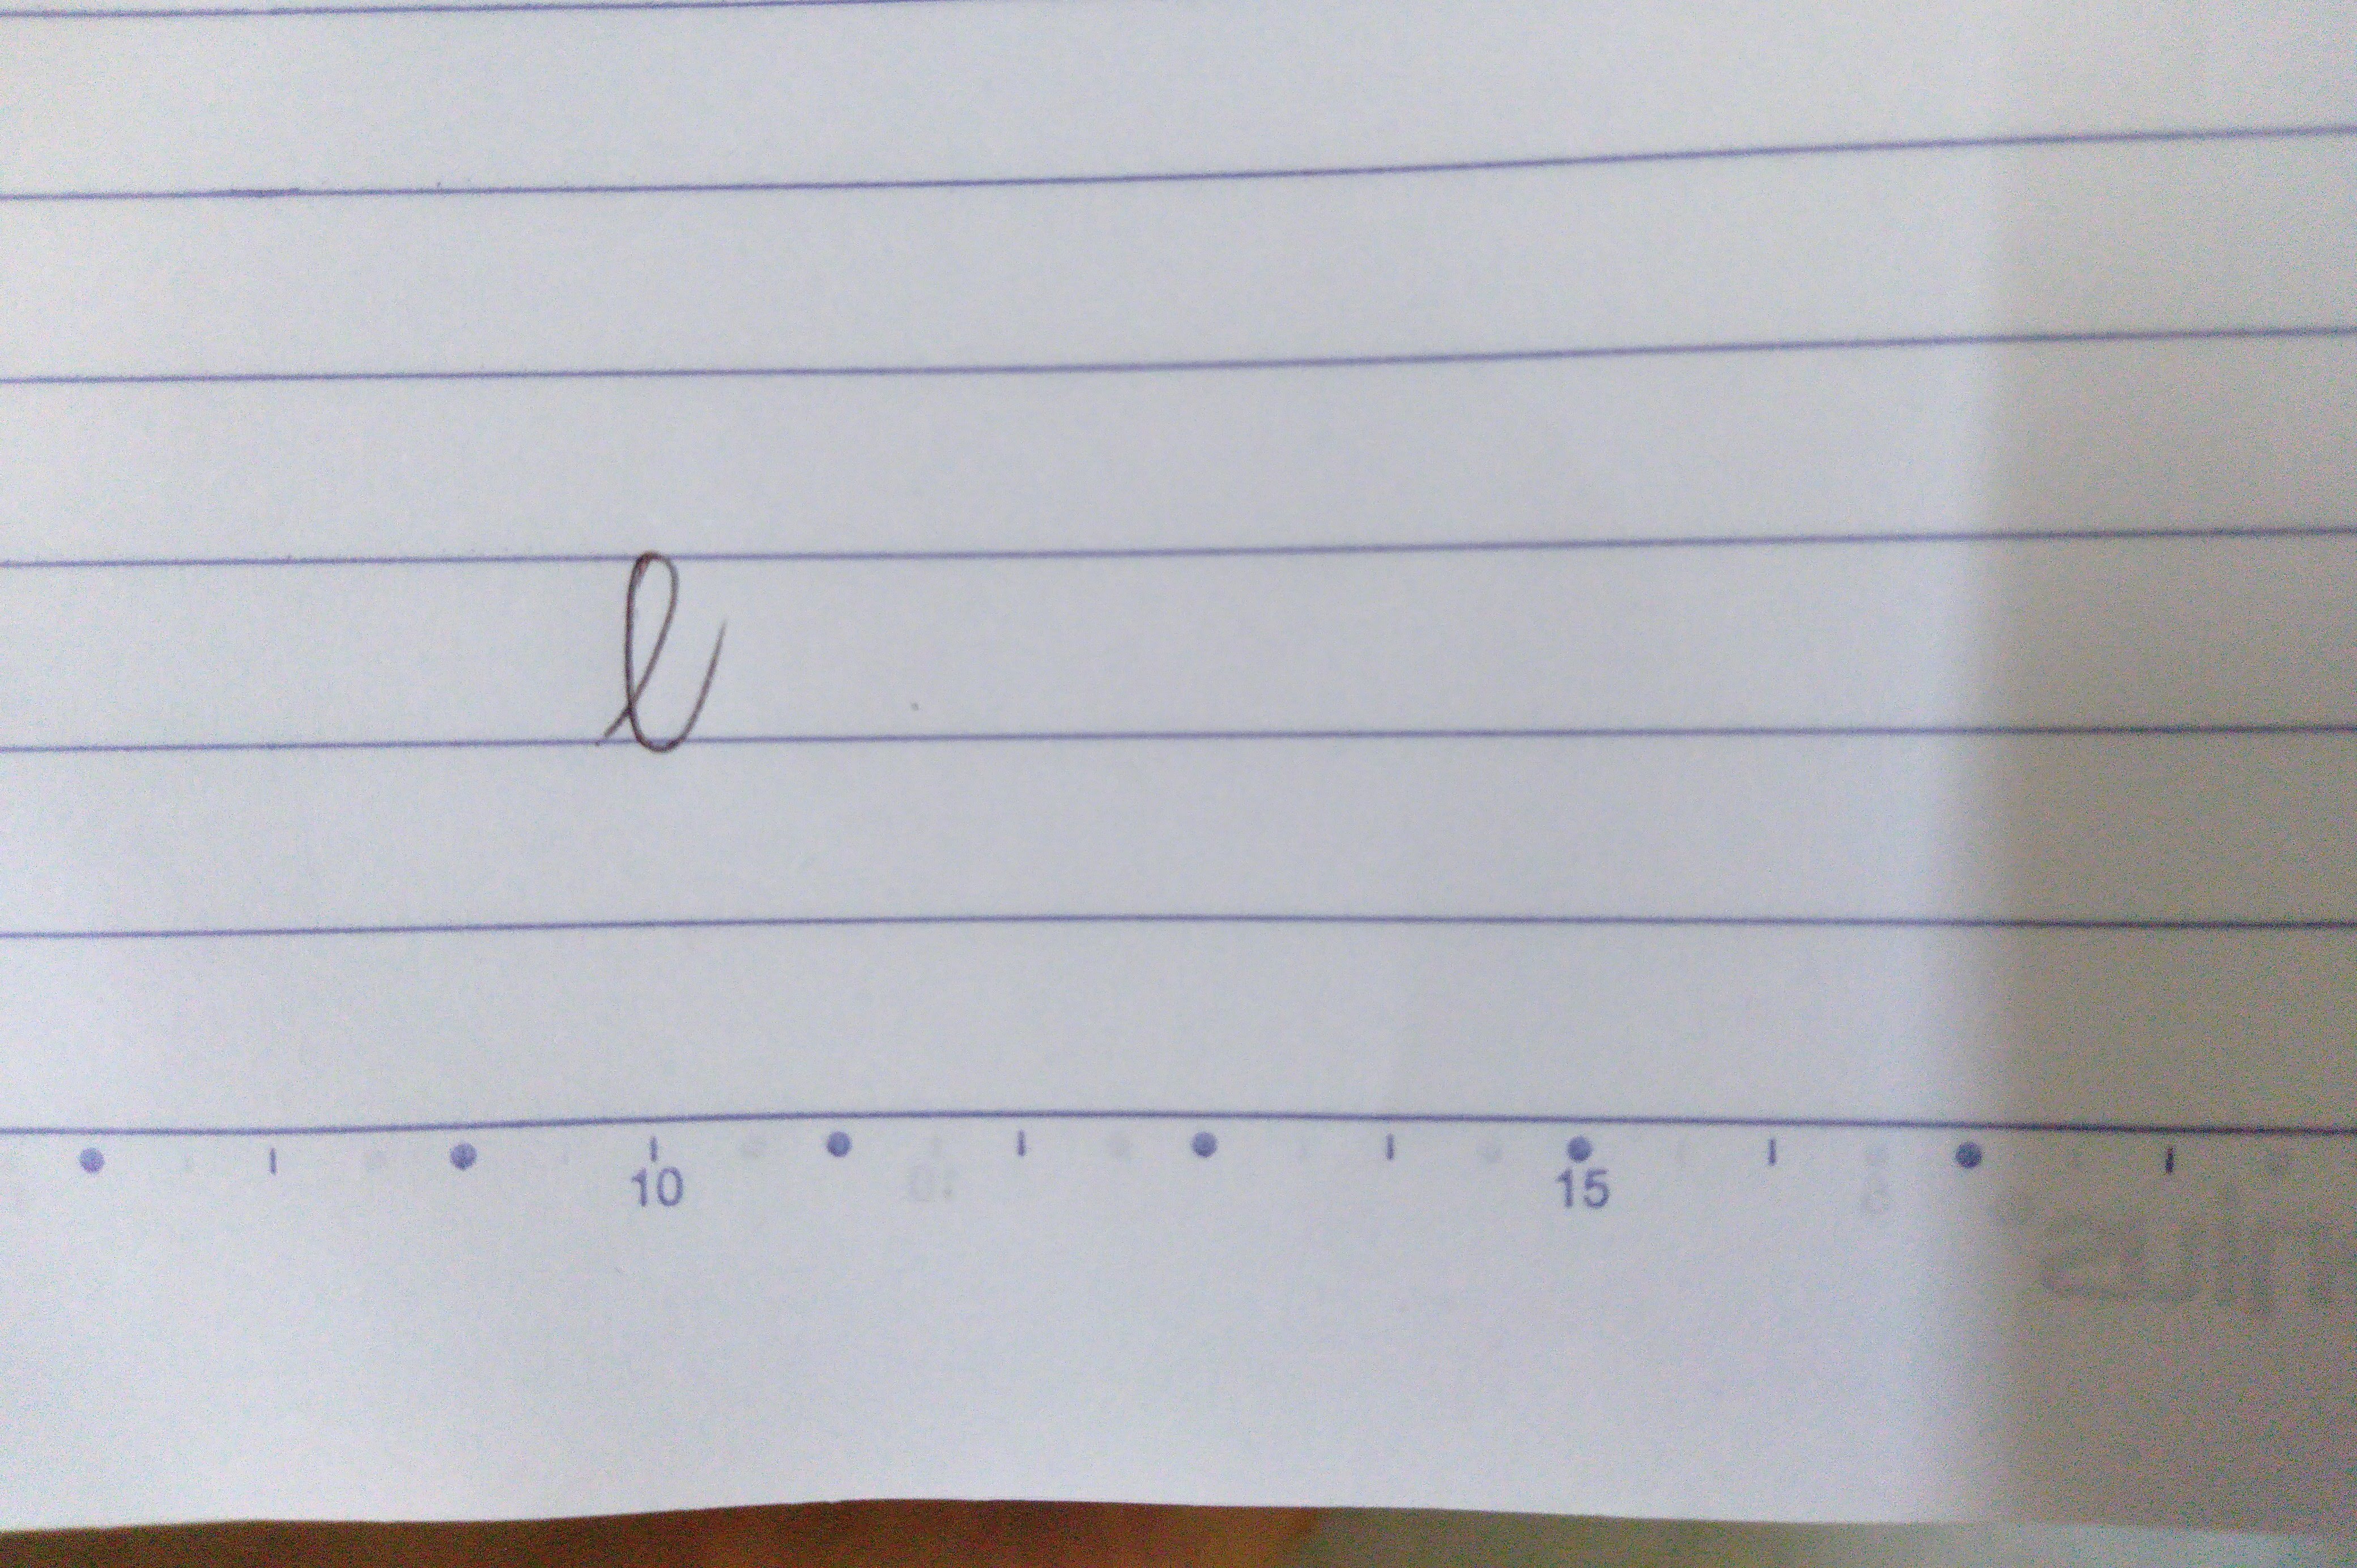 l
10 15